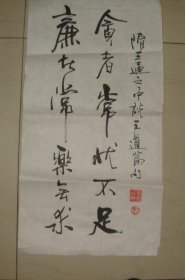 隋王通文中說王道篇句
貪者常忧不足
廉者常樂無求